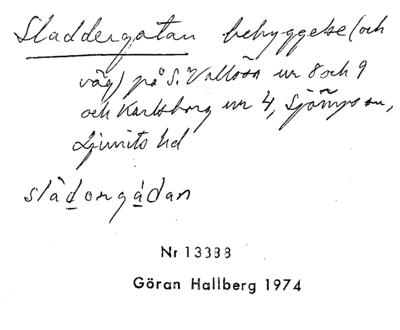 Sladdergatan bebyggelse (och
väg) på S. Vallösa nr 8 och 9
och Karlsborg nr 4,
Ljunits hd
slàdorgádan
Nr 13388
Göran Hallberg 1974